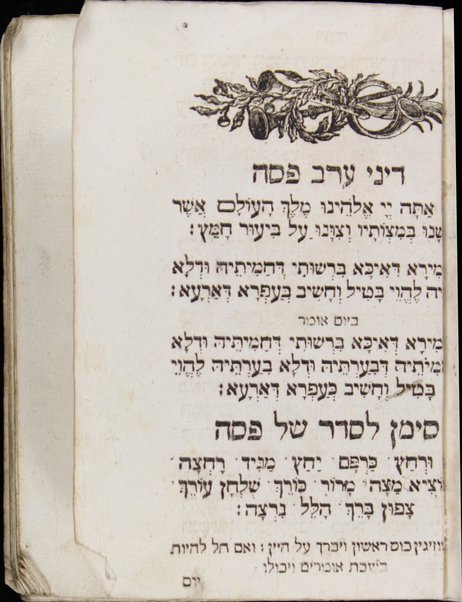 דיני ערב פסה
אַתָּה יְיָ אֱלֹהֵינוּ מֶלֶךְ הָעוֹלָם אֲשֶׁר
שָׁנוּ בְּמִצְוֹתָיו וְצִוָּנוּ עַל בִּיעוּר חָמֵץ:
מִירָא דְּאִיכָּא בִּרְשׁוּתִי דְּחֲמִיתֵיהּ וּדְלָא
יהּ לֶהֱוֵי בָּטִיל וְחָשִׁיב כְּעַפְרָא דְּאַרְעָא:
ביום אומר
מִירָא דְּאִיכָּא בִּרְשׁוּתִי דְּחֲמִיתֵיהּ וּדְלָא
מִתֵיהּ דְּבִעַרְתֵּיהּ וּדְלָא בִעַרְתֵּיהּ לֶהֱוֵי
בָּטִיל וְחָשִׁיב כְּעַפְרָא דְּאַרְעָא:
סימן לסדר של פסה
וּרְחַץ כַּרְפַּס יַחַץ מַגִּיד רָחְצָה
וֹצִיא מַצָּה מָרוֹר כּוֹרֵךְ שֻׁלְחָן עוֹרֵךְ
צָפוּן בָּרֵךְ הַלֵּל נִרְצָה:
מוזגין כוס ראשון ויברך על היין: ואם חל להיות
בשבת אומרים ויכולו
יום